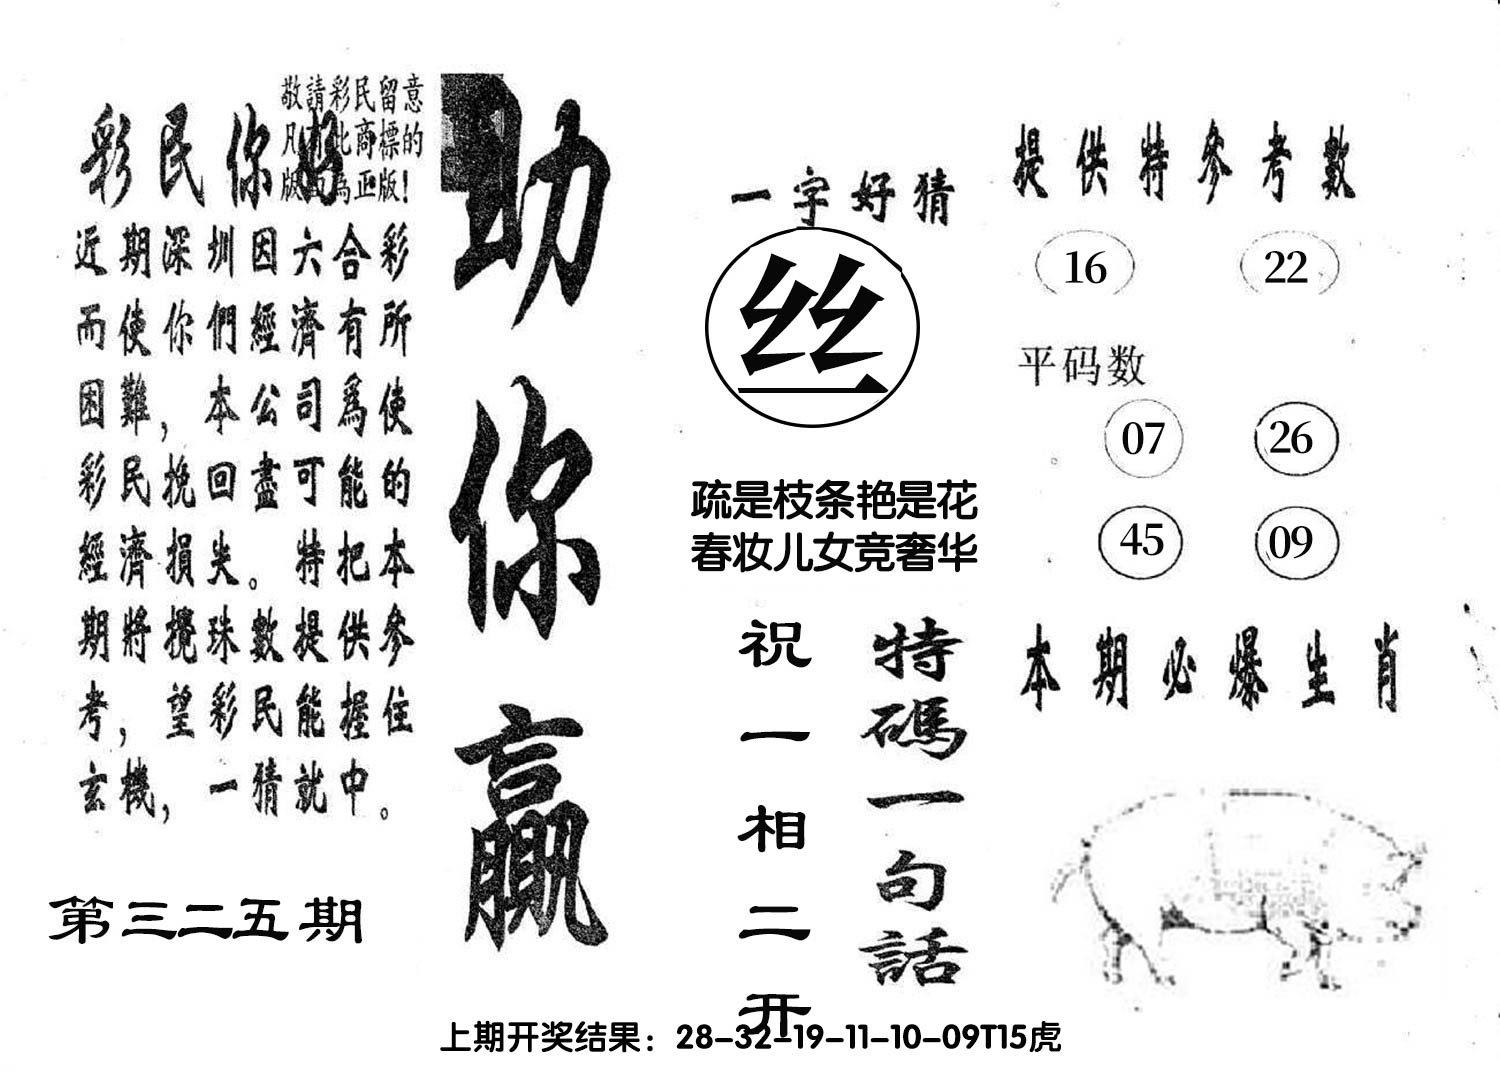 敬請彩民留意
凡有此商標的
版面為正版!
彩民你好
近期深圳因六合彩
而使你們經濟有所
困難,本公司爲使
彩民挽回盡可能的
經濟損失。特把本
期將攪珠數提供參
考,望彩民能握住
玄機,一猜就中。
第三二五期
助你贏
一字好猜
丝
疏是枝条艳是花
春妆儿女竞奢华
特碼一句話
祝一相二开
提供特參考數
16 22
平码数
07 26
45 09
本期必爆生肖
上期开奖结果：28-32-19-11-10-09T15虎